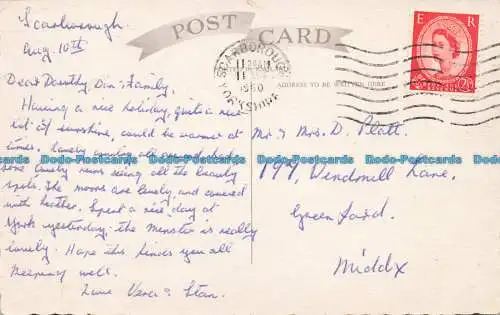 Scarborough.
Aug. 10th
POST CARD
SCARBOROUGH
YORKSHIRE
1960
E R
2½D
ADDRESS TO BE WRITTEN HERE
Dear Dorothy, Din & Family,
Having a nice holiday, quite a nice
lot of sunshine, could be warmer at
times. Lovely
some lovely runs seeing all the beauty
spots. The moors are lovely and covered
with heather. Spent a nice day at
York yesterday: the minster is really
lovely. Hope this finds you all
keeping well.
Love Vera & Stan.
Mr & Mrs. D. Platt.
199, Windmill Lane,
Greenford.
Middx
Postcards Postcards Postcards Postcards